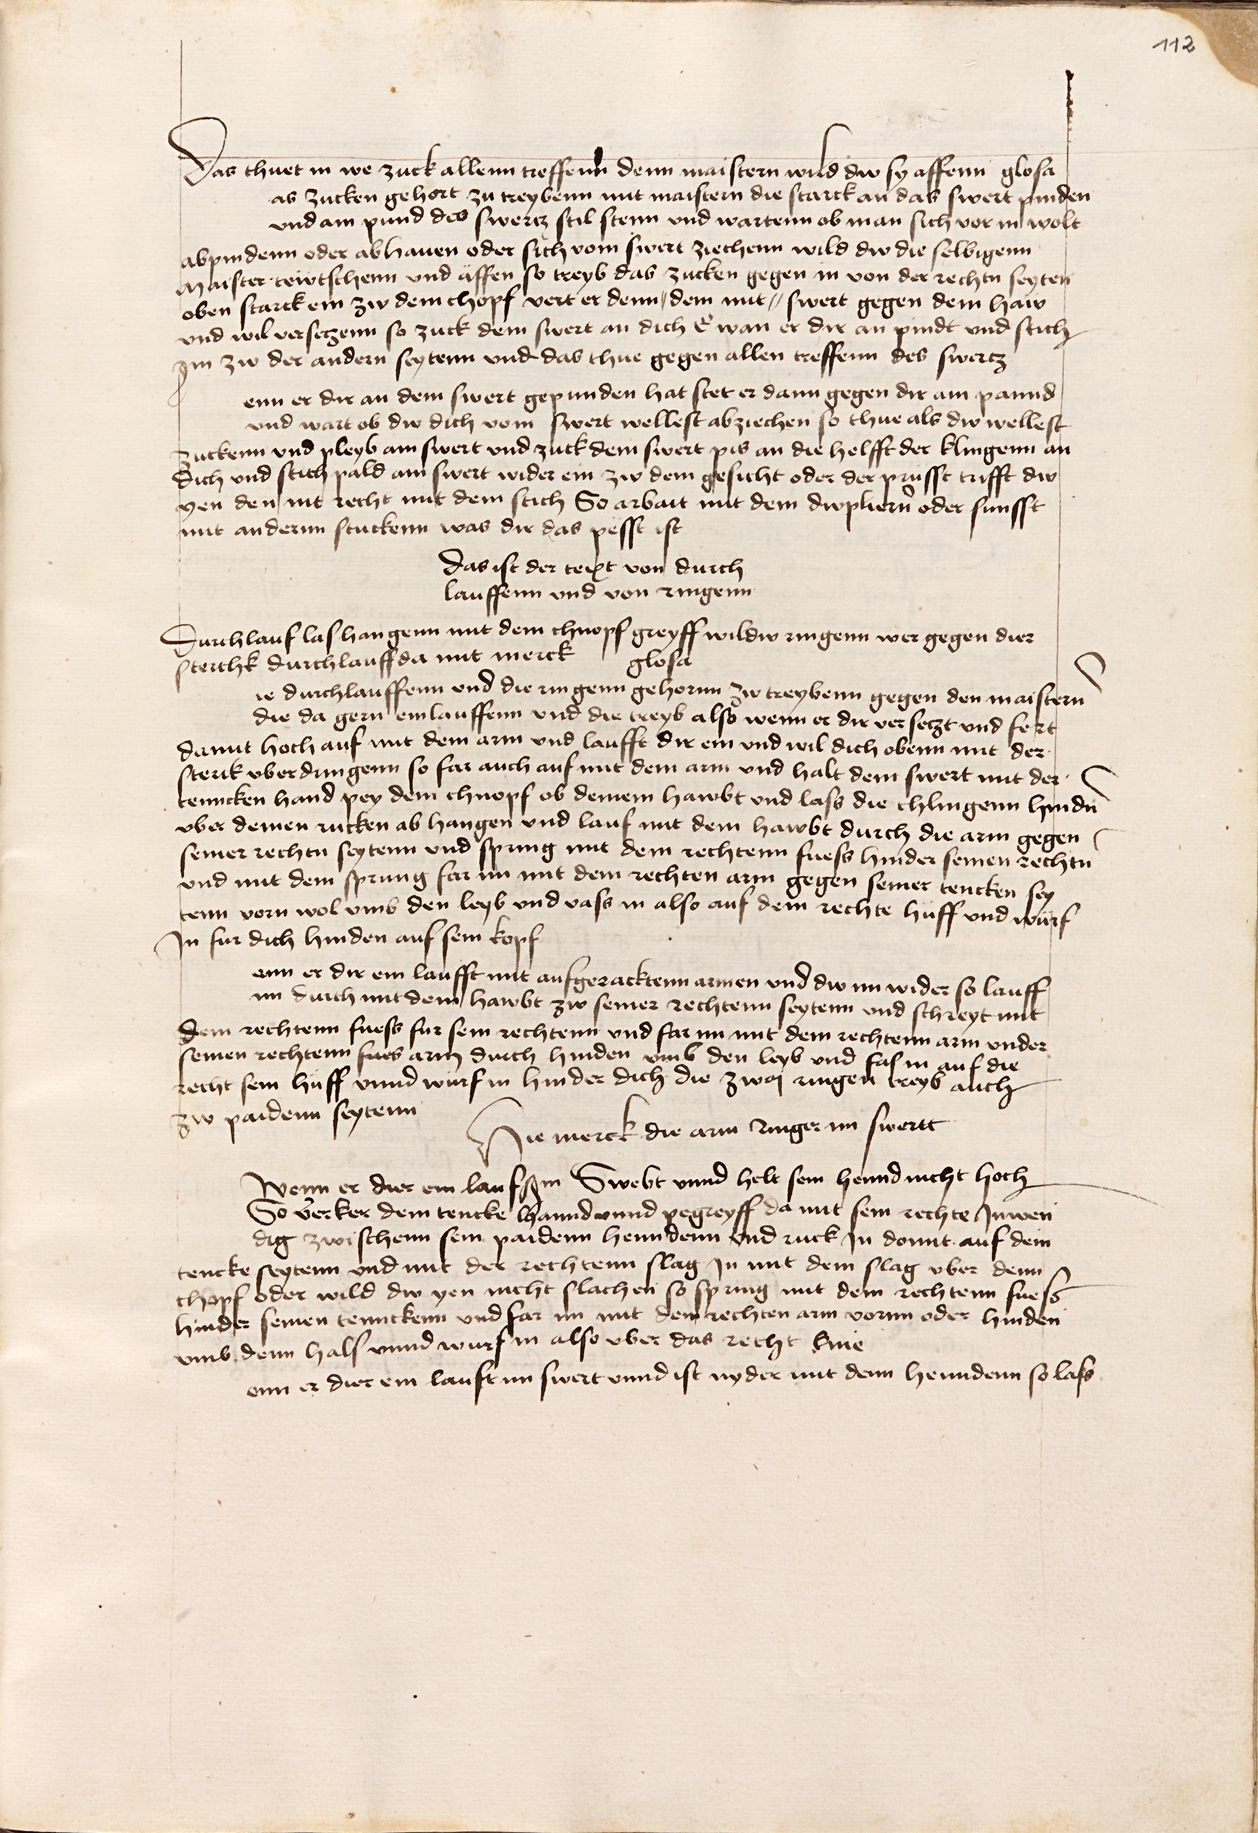 112
Das thuet in we zuck allenn treffenn denn maistern wild dw sy affenn glosa
as zucken gehort zu treybenn mit maistern die starck an das swert pinden
und am pund des swertz stil stenn und wartenn ob man sich vor in wolt
abpindenn oder abhauen oder sich vom swert ziechenn wild dw die selbigenn
maister tewtschenn und äffen so treyb das zucken gegen in von der rechtn seyten
oben starck ein zw dem chopf vert er denn dem mit swert gegen dem haw
und wil versetzenn so zuck dein swert an dich E wan er dir an pindt und stich
Im zw der andern seytenn und das thue gegen allen treffenn des swertz
enn er dir an dem swert gepunden hat stet er dann gegen dir am pannd
und wart ob dw dich vom swert wellest abziechen so thue als dw wellest
zuckenn und pleyb am swert und zuck dein swert pis an die helfft der klingenn an
dich und stich pald am swert wider ein zw dem gesicht oder der prusst trifft dw
yen den nit recht mit dem stich So arbait mit dem dwpliern oder sunsst
mit andernn stuckenn was dir das pesst ist
Das ist der text von durch
lauffenn und von ringenn
Durchlauf las hangenn mit dem chnopf greyff wildw ringenn wer gegen dier
sterchk durchlauff da mit merck glosa
ie durchlauffenn und die ringenn gehornn zw treybenn gegen den maistern
die da gern einlauffenn und die treyb also wenn er dir versetzt und fert
damit hoch auf mit dem arm und laufft dir ein und wil dich obenn mit der
sterk uberdringenn so far auch auf mit dem arm und halt dein swert mit der
tenncken hand pey dem chnopf ob deinem hawbt und lass die chlingenn hindn
uber deinen rucken ab hangen und lauf mit dem hawbt durch die arm gegen
seiner rechtn seytenn und spring mit dem rechtenn fuess hinder seinen rechtn
und mit dem sprung far im mit dem rechten arm gegen seiner tencken sey
tenn vorn wol umb den leyb und vass in also auf dein rechte hüff und würf
In fur dich hinden auf sein kopf
enn er dir ein laufft mit aufgeracktenn armen und dw im wider so lauff
im durch mit dem hawbt zw seiner rechtenn seytenn und schreyt mit
dem rechtenn fuess fur sein rechtenn und far im mit dem rechtenn arm under
seinen rechtenn fues arm durch hinden umb den leyb und fas in auf die
recht sein hüff unnd würf in hinder dich die zwaj ringen treyb auch
zw paidenn seytenn
Hie merck die arm Ringer im swertt
Wenn er dier ein lauf im Swebt unnd helt sein hennd nicht hoch
So verker dein tencke hannd unnd pegreyff da mit sein rechte Inwen
dig zwischenn sein paidenn henndenn und ruck In domit auf dein
tencke seytenn und mit der rechtenn slag In mit dem slag uber denn
chopf oder wild dw yen nicht slachen so spring mit dem rechtenn fuess
hinder seinen tennckenn und far im mit dem rechten arm vornn oder hinden
umb denn hals unnd wurf in also uber das recht knie
enn er dier ein lauft im swert unnd ist nyder mit denn henndenn so lass